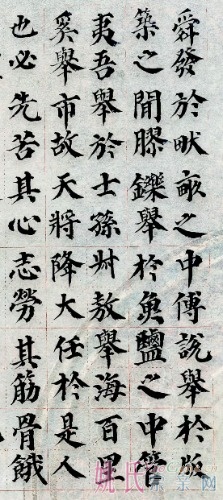 舜發於畎畝之中傅說舉於版
築之間膠鑠舉於魚鹽之中管
夷吾舉於士孫叔敖舉海百里
奚舉市故天將降大任於是人
也必先苦其心志勞其筋骨餓